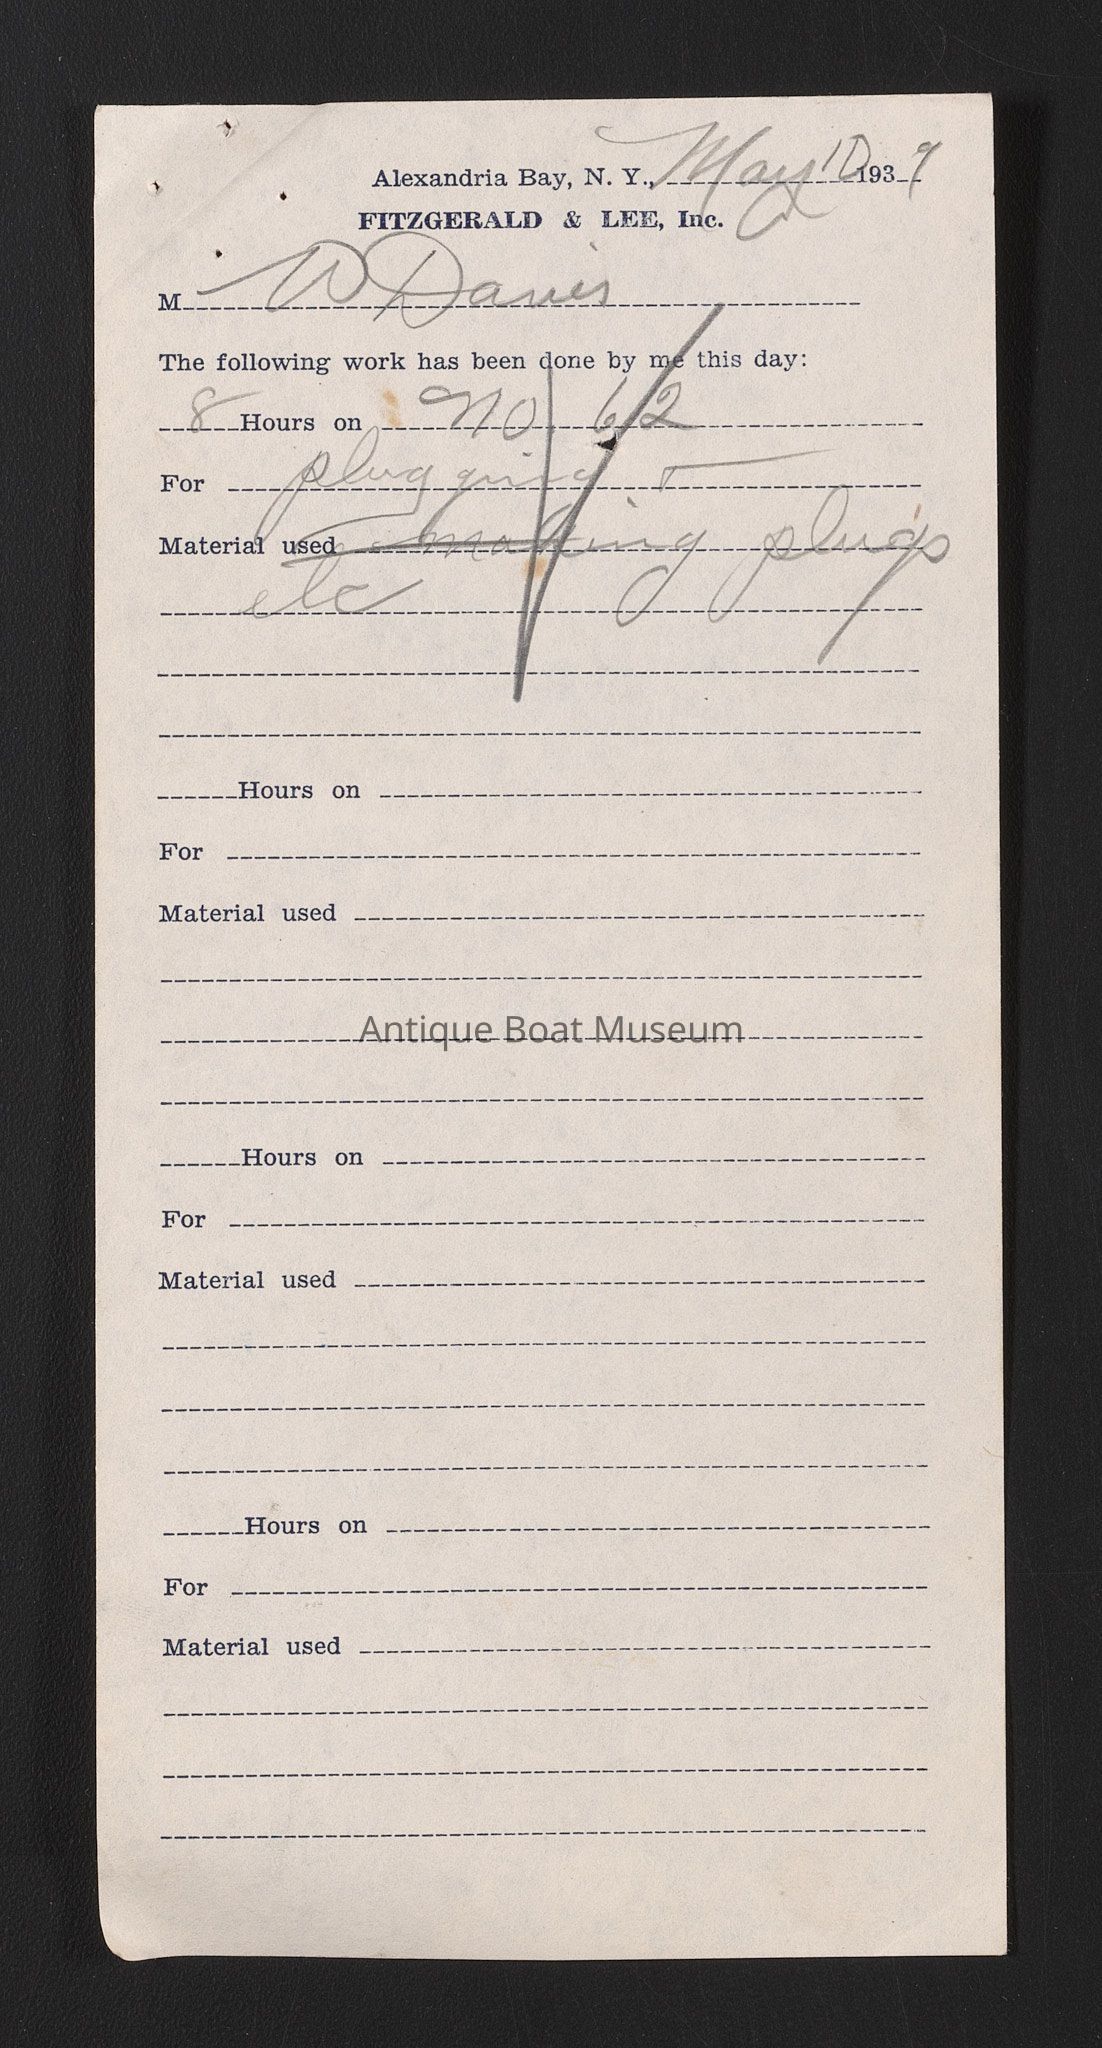 Alexandria Bay, N. Y., May 10 1939
FITZGERALD & LEE, Inc.
M W Davis
The following work has been done by me this day:
8 Hours on No 62
For plugging &
Material used making plugs
etc
Hours on
For
Material used
Antique Boat Museum
Hours on
For
Material used
Hours on
For
Material used